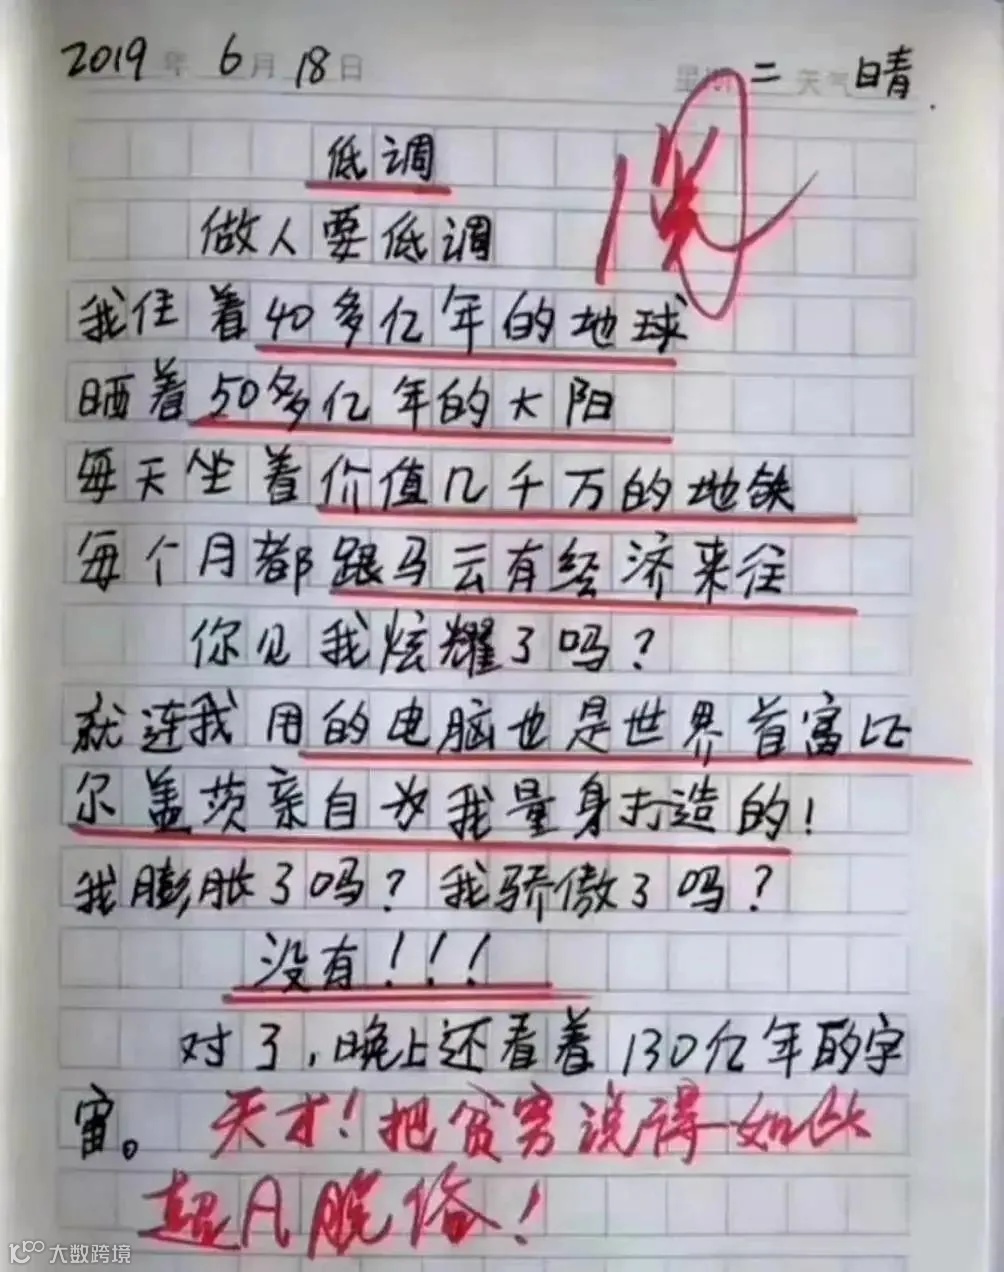 2019年 6月 18日 星期二 天气晴.
低调
做人要低调
我住着40多亿年的地球
晒着50多亿年的大阳
每天坐着价值几千万的地铁
每个月都跟马云有经济来往
你见我炫耀了吗?
就连我用的电脑也是世界首富比
尔盖茨亲自为我量身打造的!
我膨胀了吗?我骄傲了吗?
没有!!!
对了,晚上还看着130亿年的宇
宙。天才!把贫穷说得如此
超凡脱俗!
大数跨境